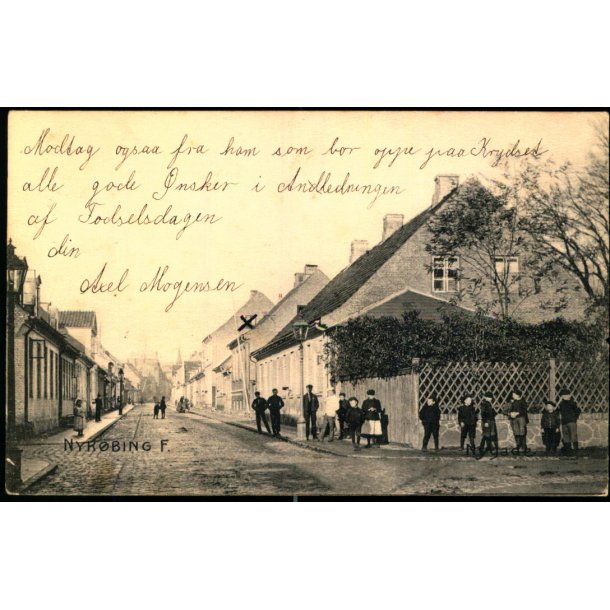 Modtag ogsaa fra ham som bor oppe paa Krydset
alle gode Ønsker i Andledningen
af Fødselsdagen
din
Axel Mogensen
NYKØBING F.